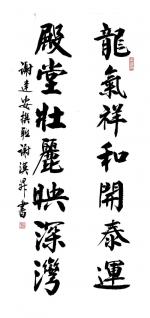 龍氣祥和開泰運
殿堂壯麗映深灣
謝達安撰聯謝漢昇書